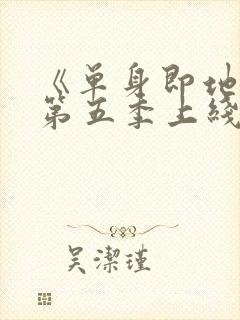 《单身即地
第五季上线
吴潔瑾